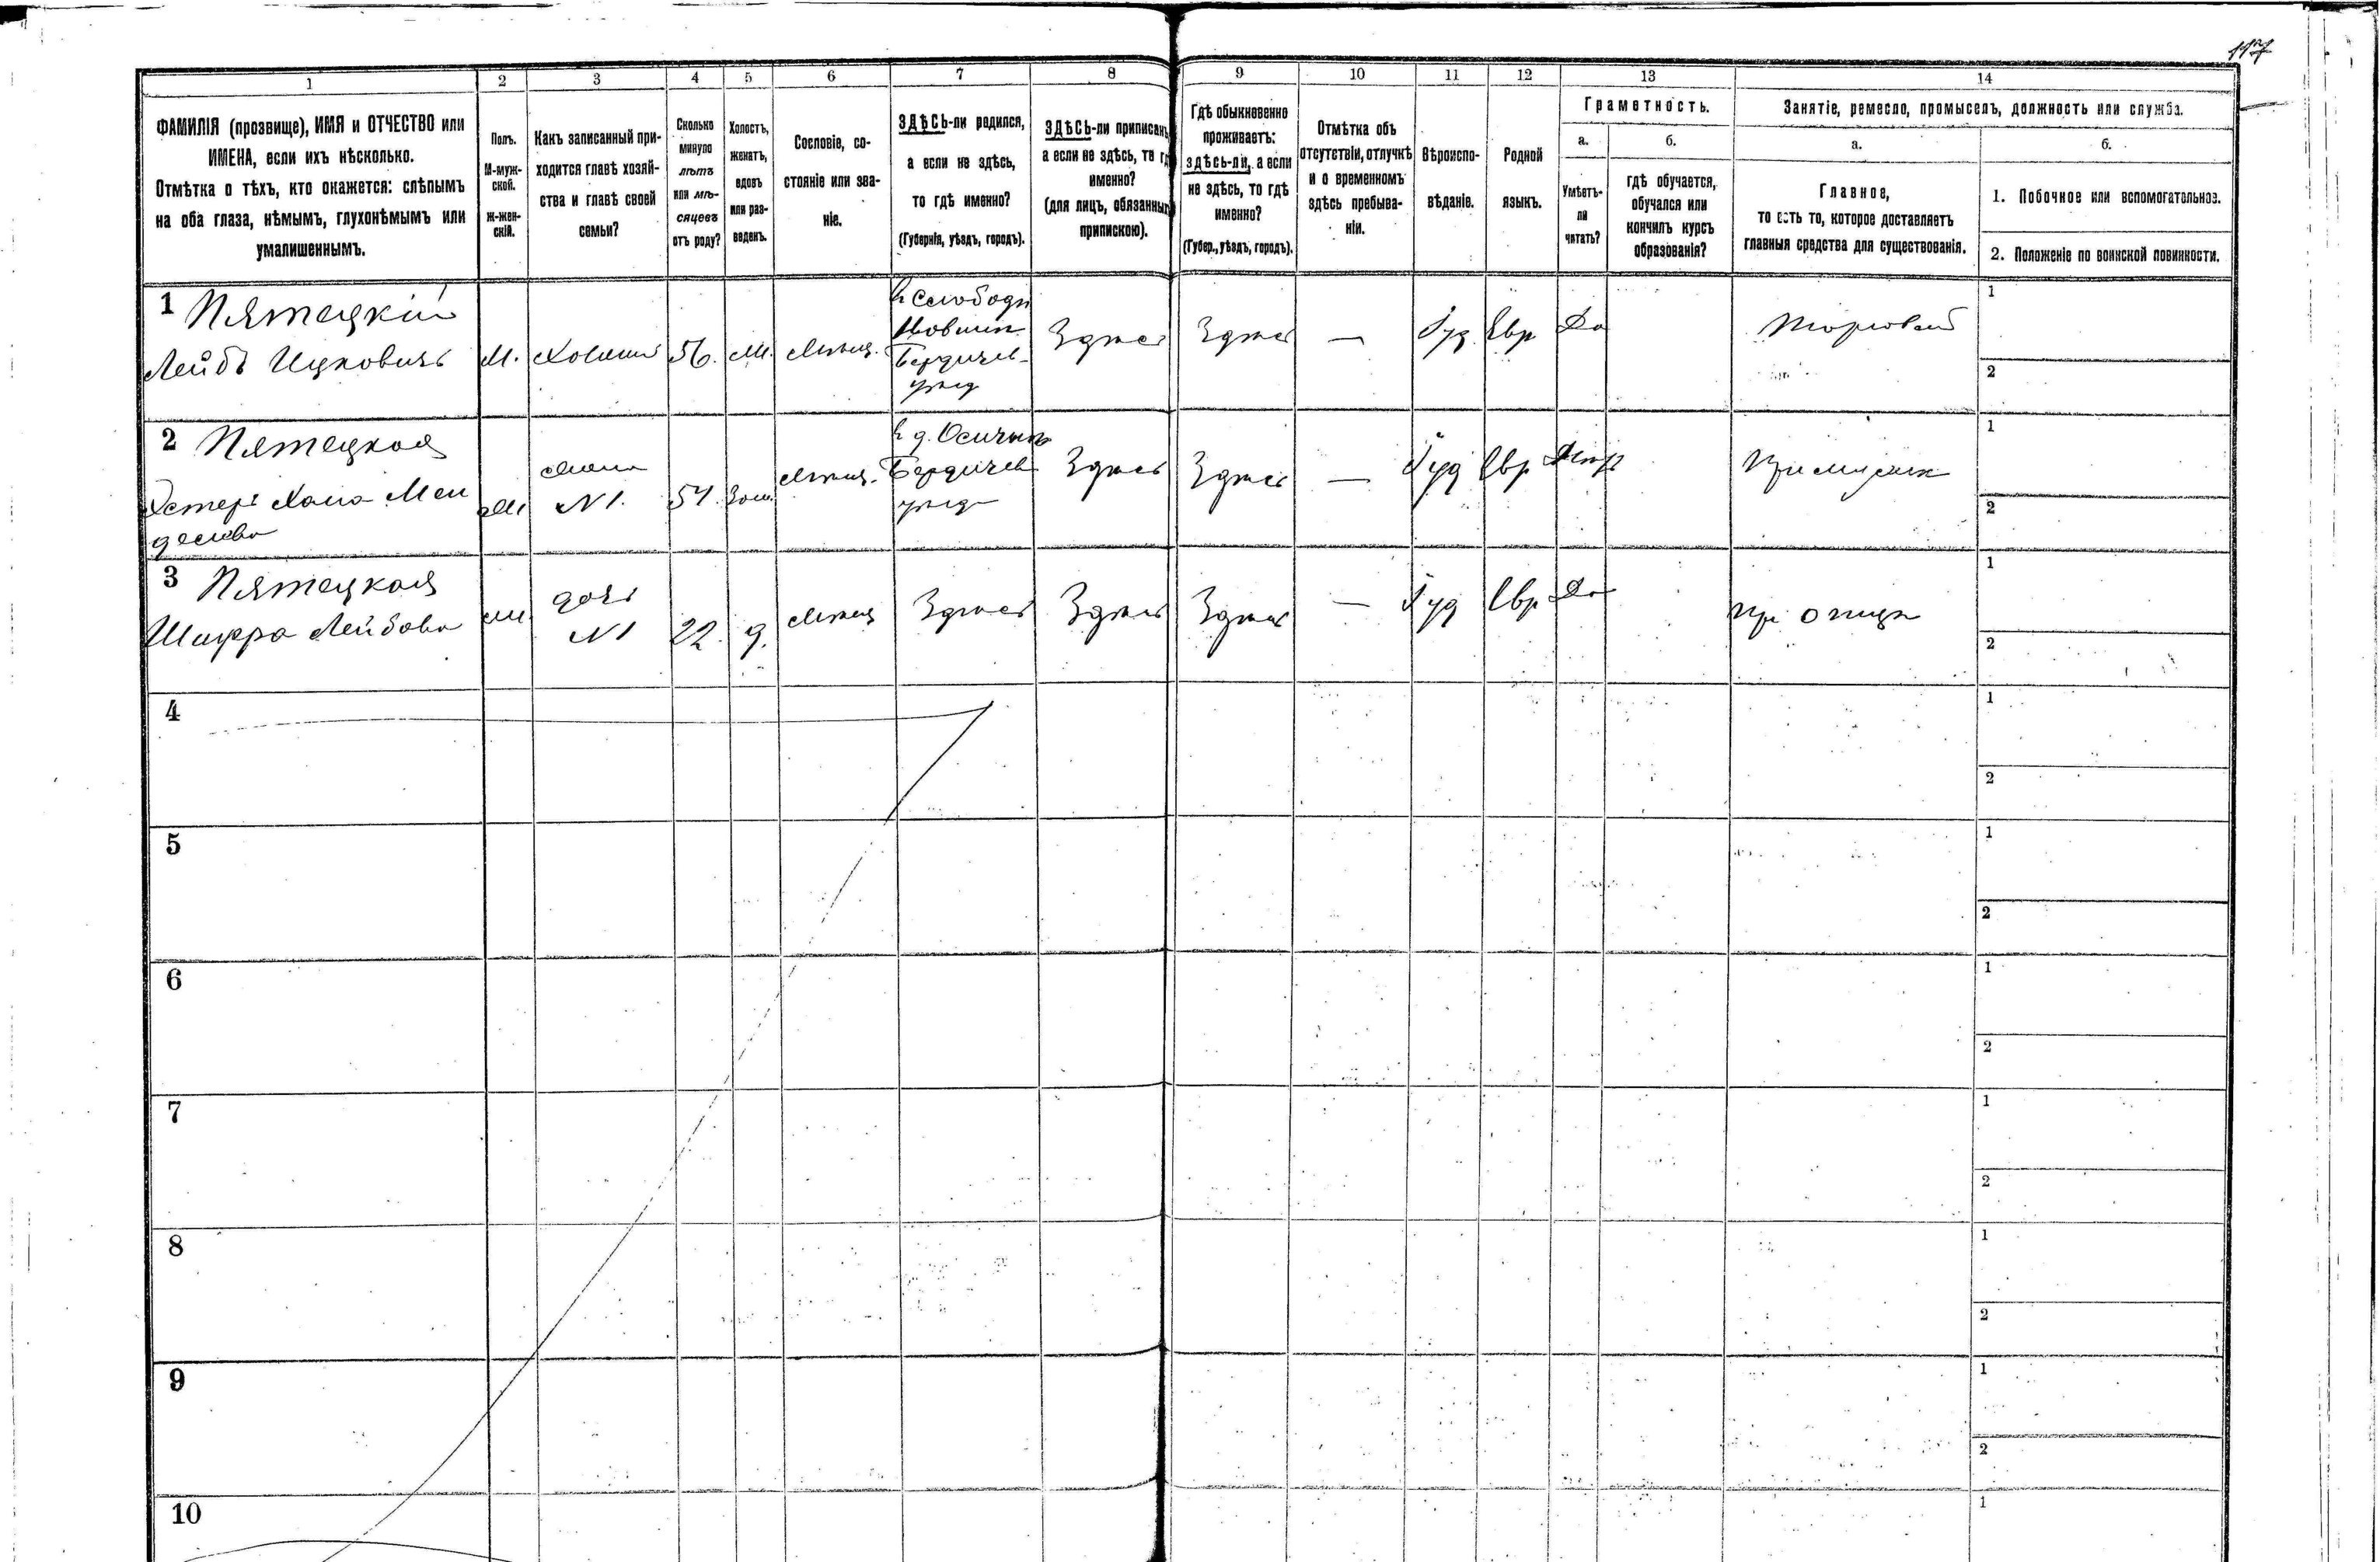 117
1 2 3 4 5 6 7 8 9 10 11 12 13 14
ФАМИЛІЯ (прозвище), ИМЯ и ОТЧЕСТВО или
ИМЕНА, если ихъ нѣсколько.
Отмѣтка о тѣхъ, кто окажется: слѣпымъ
на оба глаза, нѣмымъ, глухонѣмымъ или
умалишеннымъ.
Полъ.
М-муж-
ской.
Ж-жен-
скій.
Какъ записанный при-
ходится главѣ хозяй-
ства и главѣ своей
семьи?
Сколько
минуло
лѣтъ
или мѣ-
сяцевъ
отъ роду?
Холостъ,
женатъ,
вдовъ
или раз-
веденъ.
Сословіе, со-
стояніе или зва-
ніе.
ЗДѢСЬ-ли родился,
а если не здѣсь,
то гдѣ именно?
(Губернія, уѣздъ, городъ).
ЗДѢСЬ-ли приписанъ,
а если не здѣсь, то гдѣ
именно?
(для лицъ, обязанныхъ
припискою).
Гдѣ обыкновенно
проживаетъ:
здѣсь-ли, а если
не здѣсь, то гдѣ
именно?
(Губер., уѣздъ, городъ).
Отмѣтка объ
отсутствіи, отлучкѣ
и о временномъ
здѣсь пребыва-
ніи.
Вѣроиспо-
вѣданіе.
Родной
языкъ.
Грамотность.
а.
Умѣетъ-
ли
читать?
б.
гдѣ обучается,
обучался или
кончилъ курсъ
образованія?
Занятіе, ремесло, промыселъ, должность или служба.
а.
Главное,
то есть то, которое доставляетъ
главныя средства для существованія.
б.
1. Побочное или вспомогательное.
2. Положеніе по воинской повинности.
1 Пятецкій
Лейбъ Ицковичъ
М.
Хозяинъ
56.
Ж.
Мѣщ.
Бердичев
уѣзд
Здѣсь
Здѣсь
—
Іуд.
Евр
Да
1
2
2 Пятецкая
Эстеръ Хана Мен
делева
Ж
жена
№1.
54.
Зам.
Мѣщ.
Бердичев
уѣзд
Здѣсь
Здѣсь
—
Іуд
Евр
1
2
3 Пятецкая
Шифра Лейбова
Ж
дочь
№1
22.
д.
Мѣщ
Здѣсь
Здѣсь
Здѣсь
—
Іуд
Евр
Да
при отцѣ
1
2
4
1
2
5
1
2
6
1
2
7
1
2
8
1
2
9
1
2
10
1